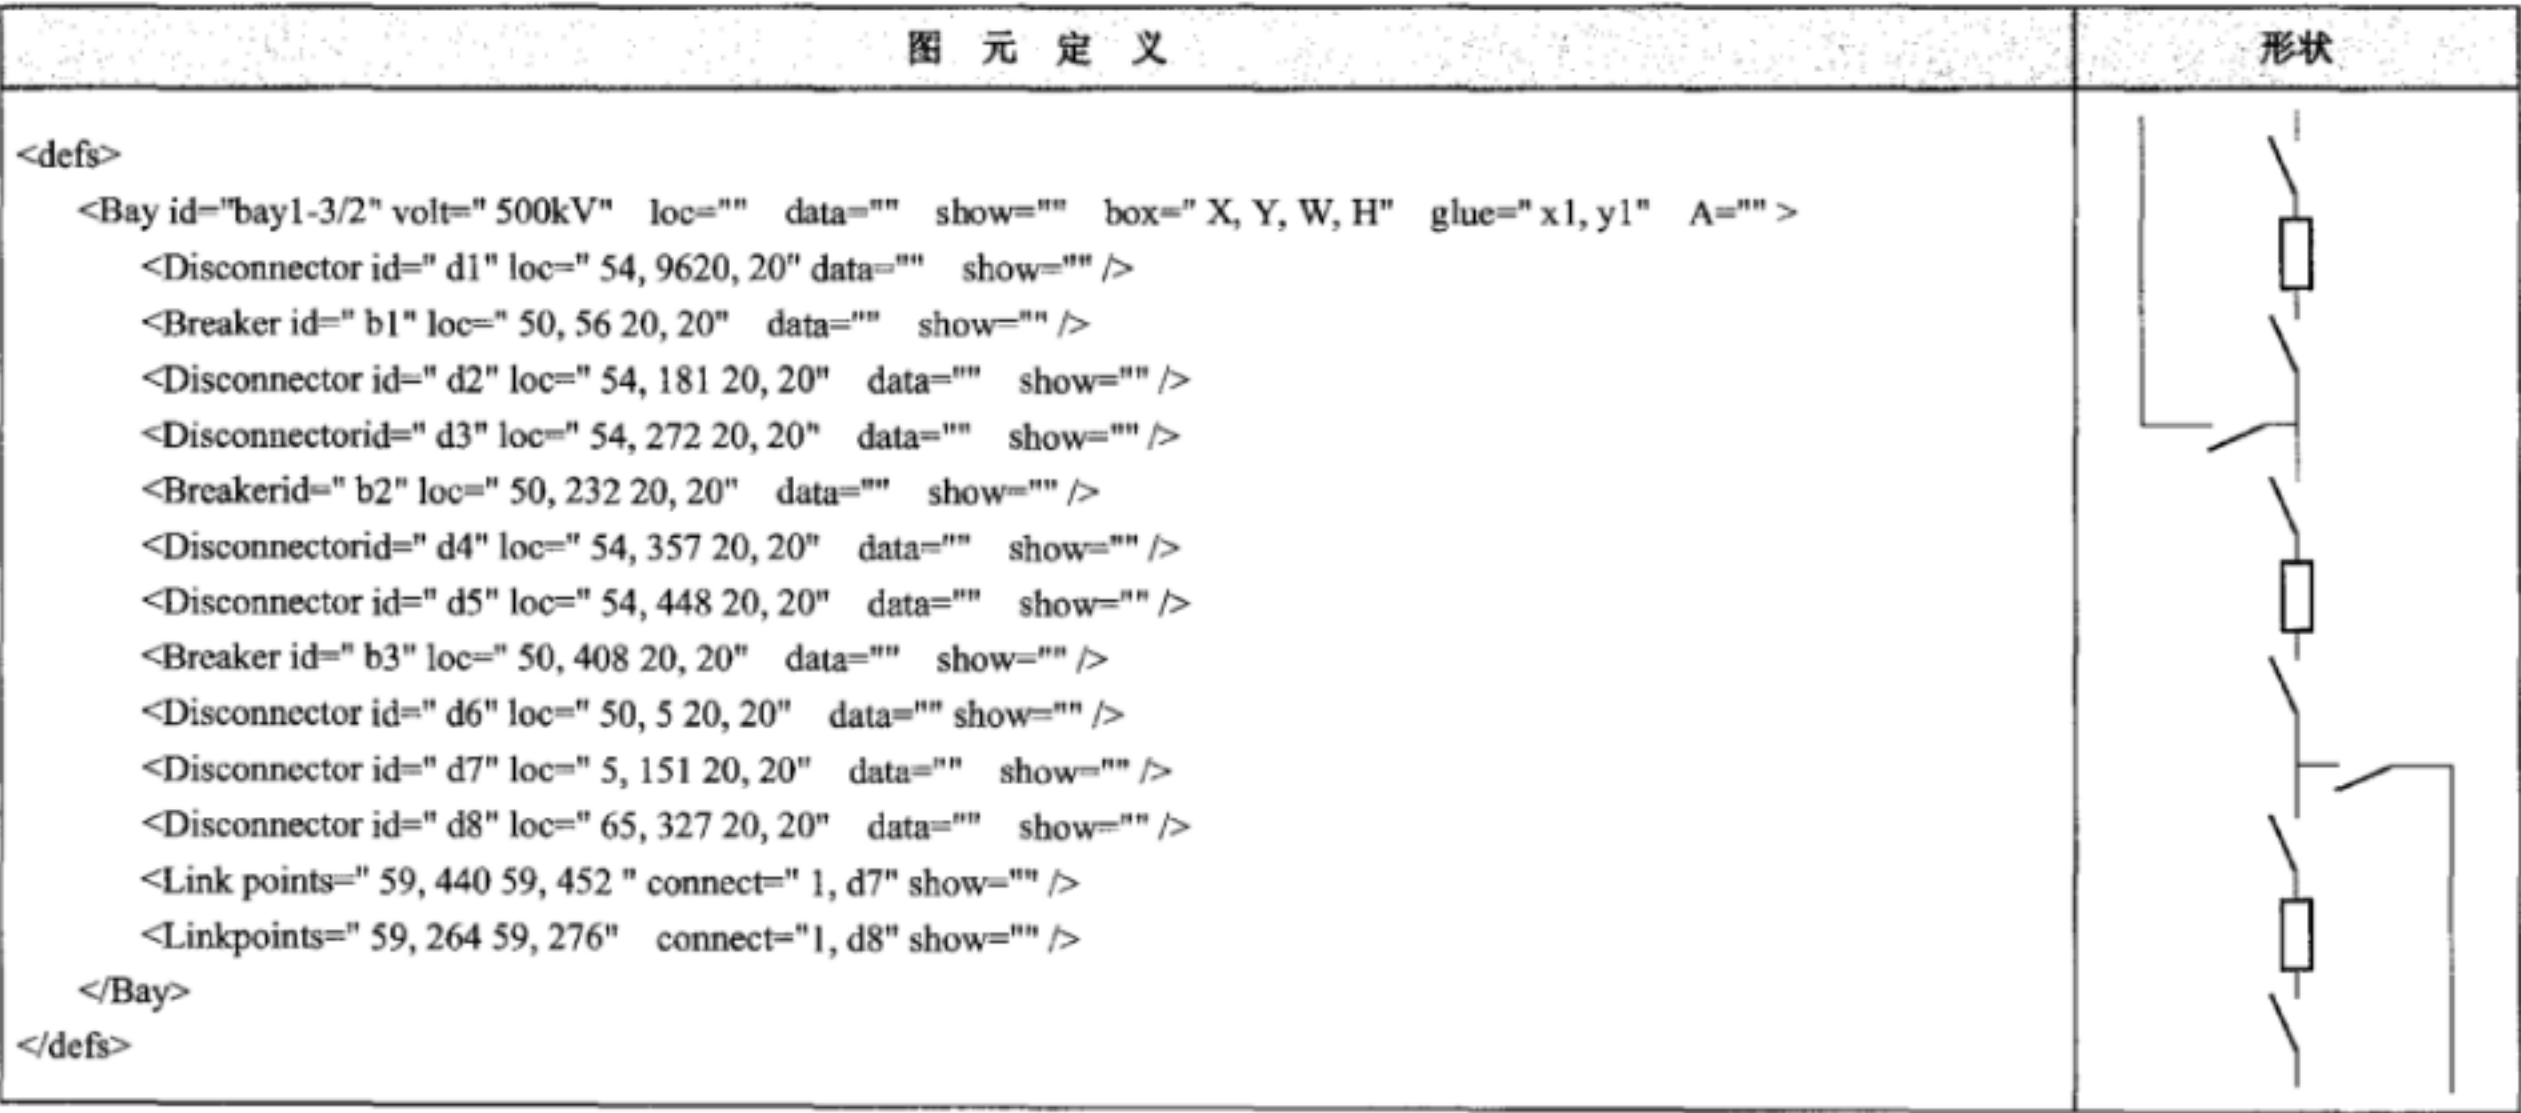 图 元 定 义 形状
<defs>
<Bay id="bay1-3/2" volt=" 500kV" loc="" data="" show="" box=" X, Y, W, H" glue=" x1, y1" A="" >
<Disconnector id=" d1" loc=" 54, 9620, 20" data="" show="" />
<Breaker id=" b1" loc=" 50, 56 20, 20" data="" show="" />
<Disconnector id=" d2" loc=" 54, 181 20, 20" data="" show="" />
<Disconnectorid=" d3" loc=" 54, 272 20, 20" data="" show="" />
<Breakerid=" b2" loc=" 50, 232 20, 20" data="" show="" />
<Disconnectorid=" d4" loc=" 54, 357 20, 20" data="" show="" />
<Disconnector id=" d5" loc=" 54, 448 20, 20" data="" show="" />
<Breaker id=" b3" loc=" 50, 408 20, 20" data="" show="" />
<Disconnector id=" d6" loc=" 50, 5 20, 20" data="" show="" />
<Disconnector id=" d7" loc=" 5, 151 20, 20" data="" show="" />
<Disconnector id=" d8" loc=" 65, 327 20, 20" data="" show="" />
<Link points=" 59, 440 59, 452 " connect=" 1, d7" show="" />
<Linkpoints=" 59, 264 59, 276" connect="1, d8" show="" />
</Bay>
</defs>